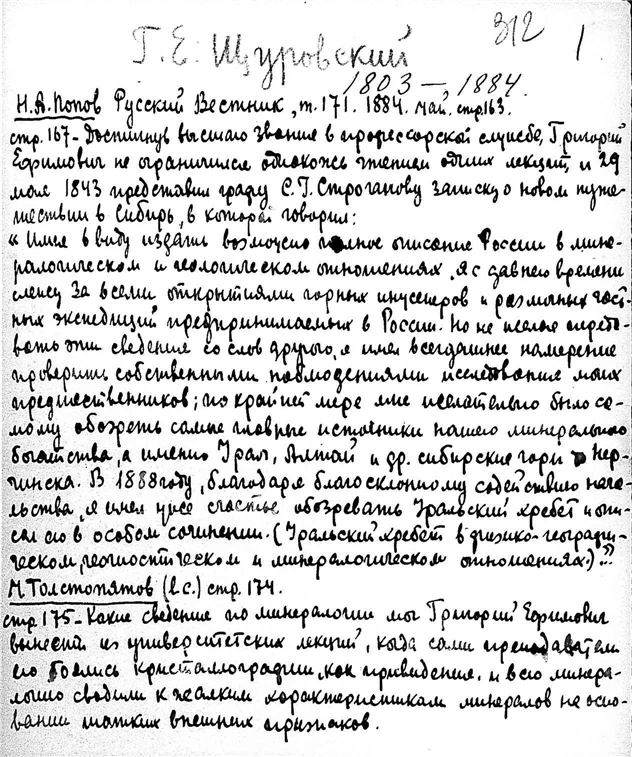 312 1
Г. Е. Щуровский
1803 – 1884.
Н. А. Попов Русский Вестник, т. 171. 1884. май. стр 163.
стр. 167 – Достигнув высшаго звания в профессорской службе, Григорий
Ефимович не ограничился однакожь чтением одних лекций, и 29
мая 1843 представил графу С. Г. Строганову записку о новом путе-
шествии в Сибирь, в которой говорил:
« Имея в виду издать возможно полное описание России в мине-
ралогическом и геологическом отношениях, я с давнего времени
слежу за всеми открытиями горных инженеров и различных част-
ных экспедиций предпринимаемых в России. Но не желая переда-
вать эти сведения со слов другого, я имел всегдашнее намерение
проверить собственными наблюдениями исследование моих
предшественников; по крайней мере мне желательно было са-
мому обозреть самые главные источники нашего минерального
богатства, а именно Урал, Алтай и др. сибирские горы Нер-
чинска. В 1888 году, благодаря благосклонному содействию нача-
льства, я имел уже счастье обозревать Уральский хребет и опи-
сал его в особом сочинении. (Уральский хребет в физико-географи-
ческом, геогностическом и минералогическом отношениях.)
М Толстопятов (l. c.) стр. 174.
стр. 175 – Какие сведения по минералогии мог Григорий Ефимович
вынести из университетских лекций, когда сами преподаватели
его боялись кристаллографии, как привидения, и всю минера-
логию сводили к жалким характеристикам минералов на осно-
вании шатких внешних признаков.